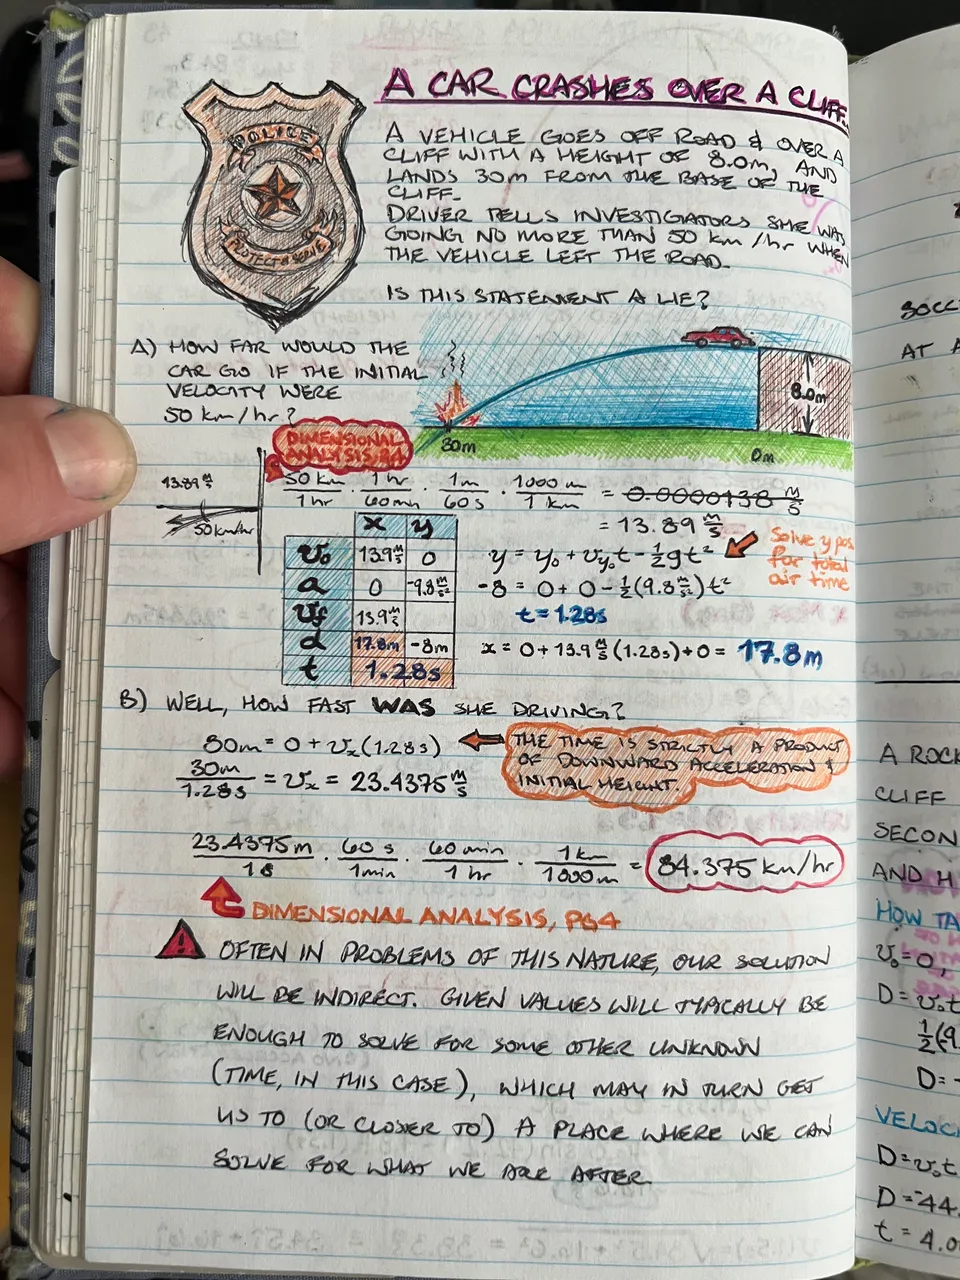 A CAR CRASHES OVER A CLIFF
POLICE
PROTECT & SERVE
A VEHICLE GOES OFF ROAD & OVER A
CLIFF WITH A HEIGHT OF 8.0m, AND
LANDS 30m FROM THE BASE OF THE
CLIFF.
DRIVER TELLS INVESTIGATORS SHE WAS
GOING NO MORE THAN 50 km/hr WHEN
THE VEHICLE LEFT THE ROAD.
IS THIS STATEMENT A LIE?
A) HOW FAR WOULD THE
CAR GO IF THE INITIAL
VELOCITY WERE
50 km/hr?
8.0m
30m
0m
DIMENSIONAL
ANALYSIS, P4
13.89 m/s
50 km/hr
50 km/1 hr · 1 hr/60 min · 1m/60s · 1000 m/1 km = 0.0000138 m/s
= 13.89 m/s
x y
v₀ 13.9 m/s 0
a 0 -9.8 m/s²
vf 13.9 m/s
d 17.8m -8m
t 1.28s
y = y₀ + vy₀t - ½gt²
Solve y pos
for total
air time
-8 = 0 + 0 - ½(9.8 m/s²)t²
t = 1.28s
x = 0 + 13.9 m/s (1.28s) + 0 = 17.8m
B) WELL, HOW FAST WAS SHE DRIVING?
30m = 0 + vx(1.28s)
THE TIME IS STRICTLY A PRODUCT
OF DOWNWARD ACCELERATION &
INITIAL HEIGHT.
30m/1.28s = vx = 23.4375 m/s
23.4375m/1s · 60 s/1min · 60 min/1 hr · 1 km/1000m = 84.375 km/hr
DIMENSIONAL ANALYSIS, PG4
! OFTEN IN PROBLEMS OF THIS NATURE, OUR SOLUTION
WILL BE INDIRECT. GIVEN VALUES WILL TYPICALLY BE
ENOUGH TO SOLVE FOR SOME OTHER UNKNOWN
(TIME, IN THIS CASE), WHICH MAY IN TURN GET
US TO (OR CLOSER TO) A PLACE WHERE WE CAN
SOLVE FOR WHAT WE ARE AFTER.
SOCC
AT A
A ROCK
CLIFF
SECON
AND H
HOW TA
v₀ = 0,
D = v₀t
½(9.
D = -
VELOC
D = v₀t
D = -44.
t = 4.0